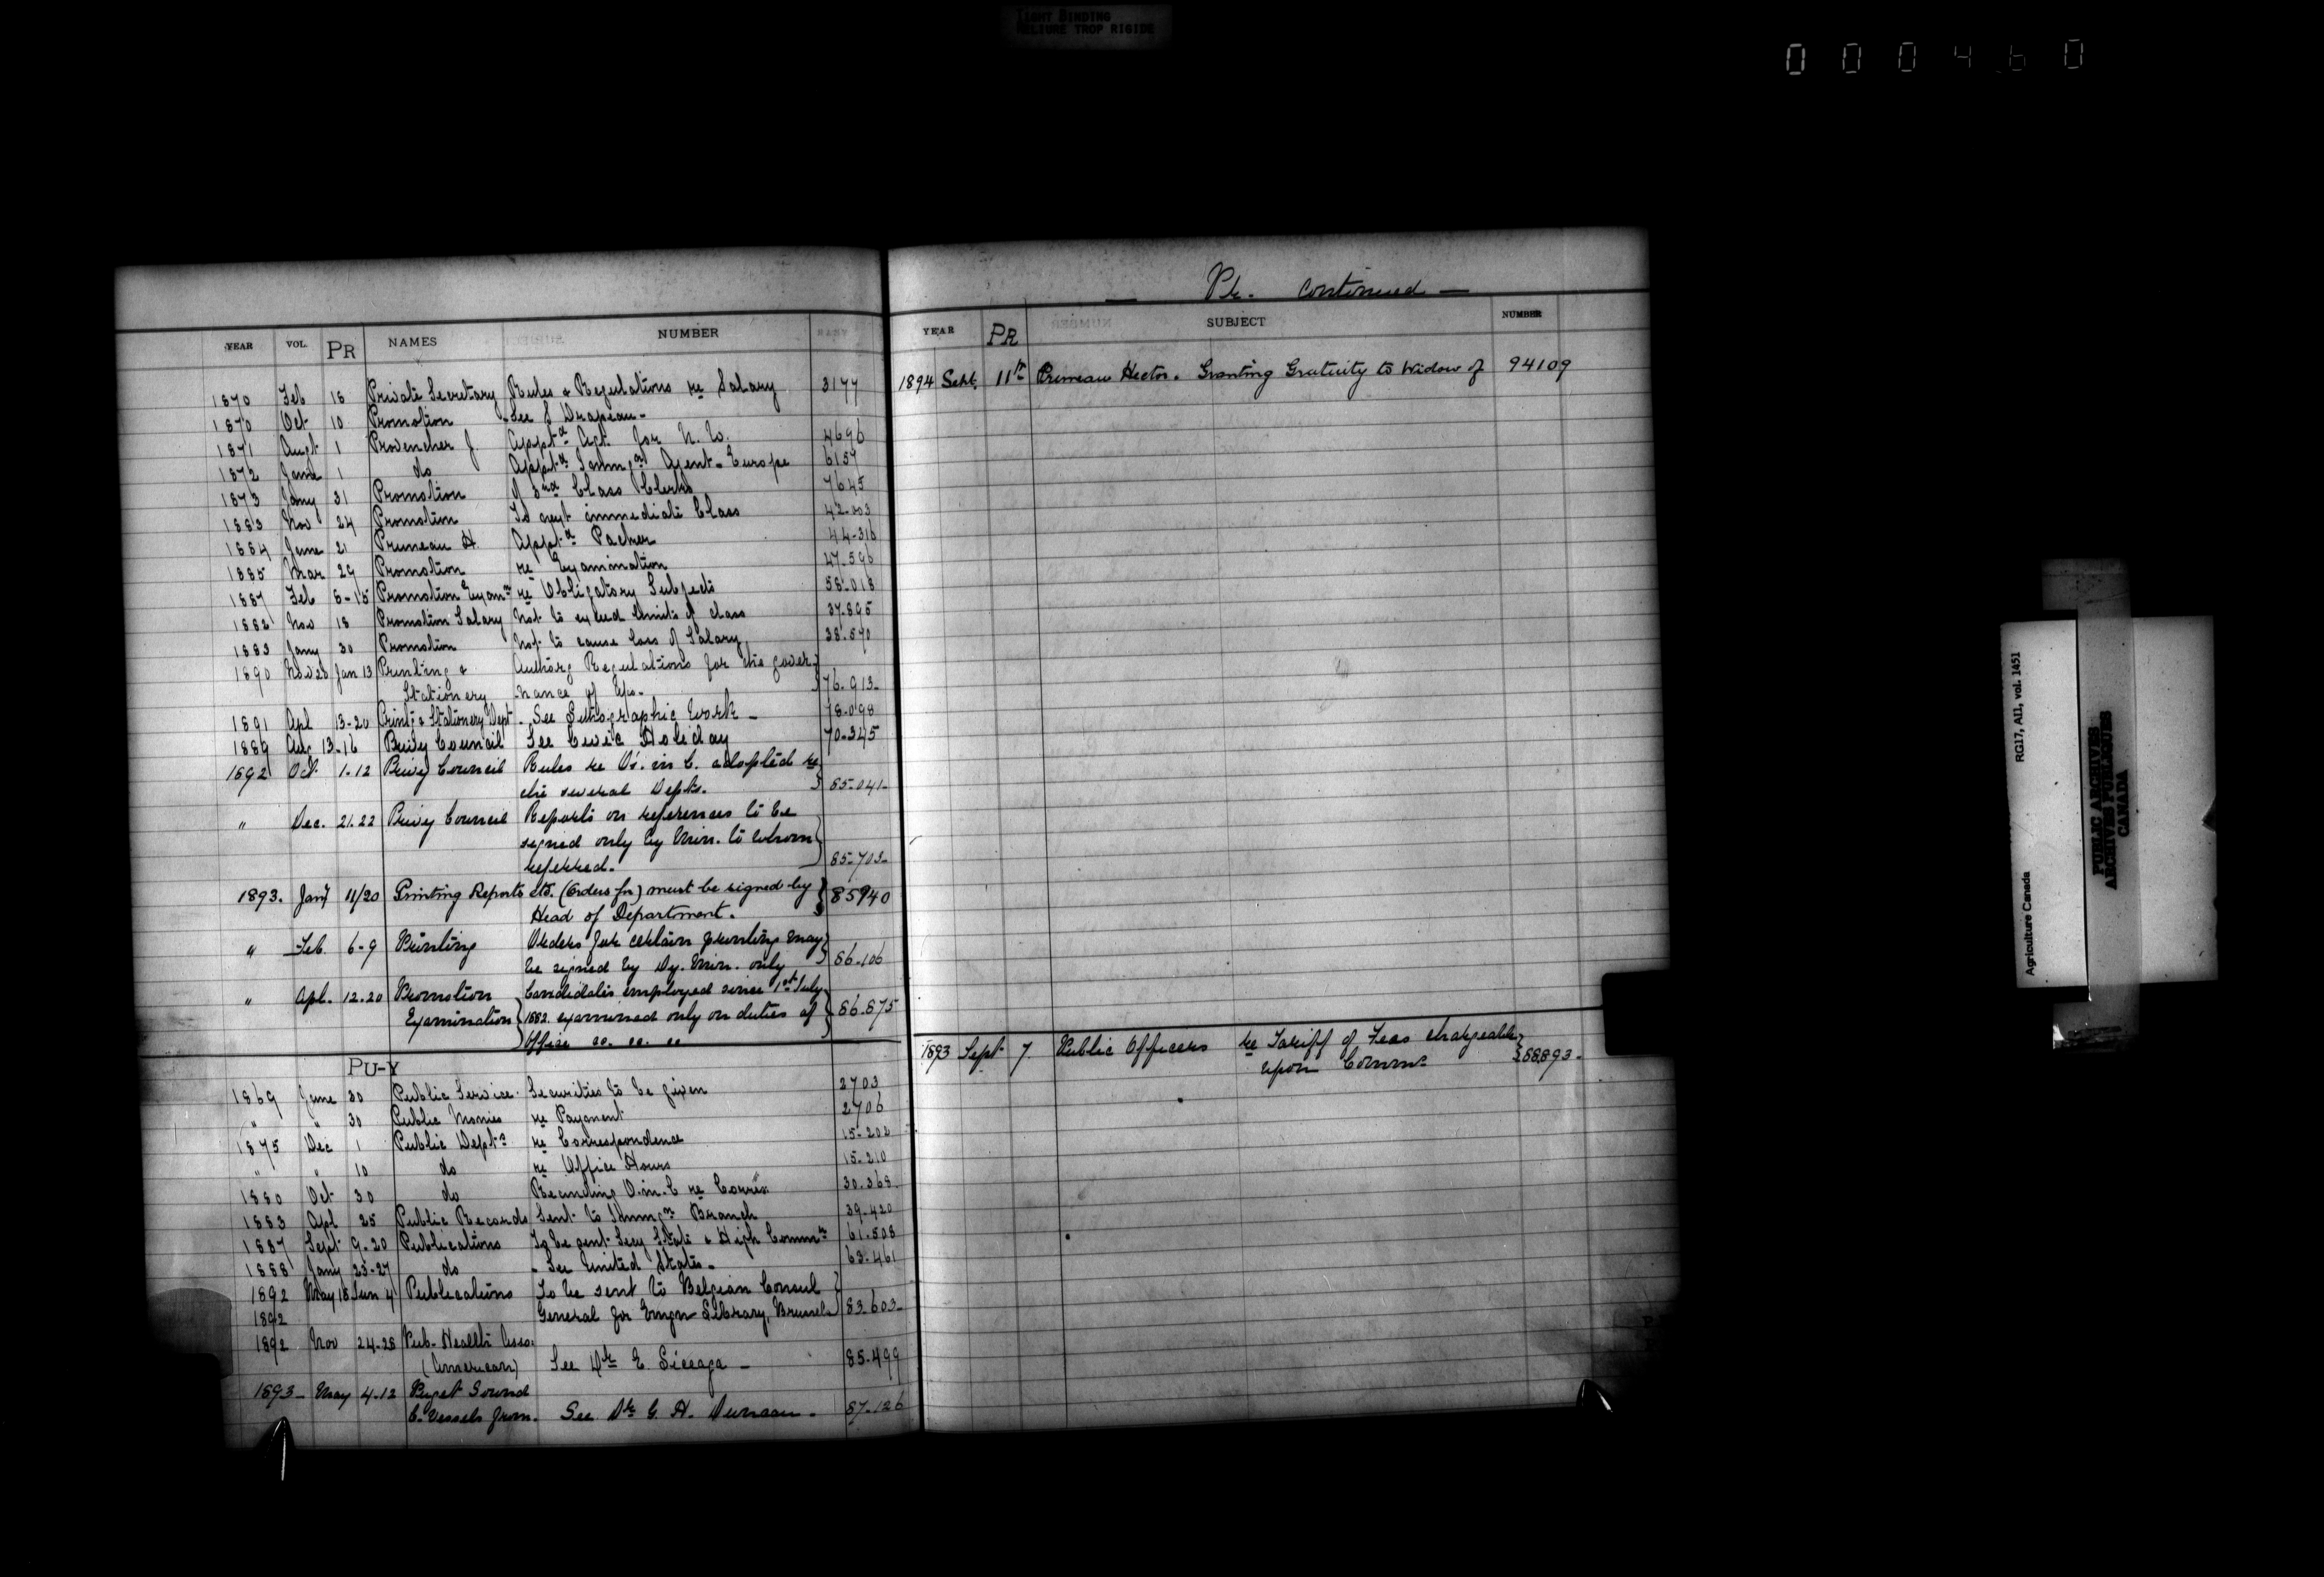 TIGHT BINDING
RELIURE TROP RIGIDE
000460
YEAR VOL. PR NAMES NUMBER
1870 Feb 18 Private Secretary Rules & Regulations re Salary 3177
1870 Oct 10 Promotion See S Drapeau-
1871 Augt 1 Provencher J. Apptd Agt. for N. W. 4696
1872 June 1 do Apptd Immgn Agent - Europe 6157
1873 Jany 31 Promotion of 3rd Class Clerks 7645
1883 Nov 24 Promotion To next immediate Class 42-003
1884 June 21 Pruneau H. Apptd Packer 44-316
1885 Mar 29 Promotion re Examination 47-596
1887 Feb 8-15 Promotion Examn re Obligatory Subjects 58-018
1882 Nov 18 Promotion Salary Not to exceed limits of class 37-895
1883 Jany 30 Promotion Not to cause loss of Salary 38-570
1890 Nov 20 Jan 13 Printing & Authorg Regulations for the gover-
Stationery -nance of Epo- 76-913-
1891 Apl 13-20 Print & Stationery Dept - See Lithographic Work - 78-098
1889 Aug 13-16 Privy Council See Civic Holiday 70-345
1892 Oct. 1-12 Privy Council Rules re O's. in C. adopted re
the several Depts. 85-041-
" Dec. 21-22 Privy Council Reports on references to be
signed only by Min. to whom
referred. 85-703-
1893. Jany 11/20 Printing Reports etc. (Orders for) must be signed by
Head of Department. 85940
" Feb. 6-9 Printing Orders for certain printing may
be signed by Dy. Min. only 86-106
" Apl. 12-20 Promotion Candidates employed since 1st July
Examination 1882. examined only on duties of 86-875
Office &c. &c. &c
PU-Y
1869 June 30 Public Service. Securities to be given 2703
" " 30 Public Monies re Payment 2706
1875 Dec 1 Public Depts re Correspondence 15-202
" " 10 do re Office Hours 15-210
1880 Oct 30 do Recinding O.in.C re Corres. 30-368-
1883 Apl 25 Public Records Sent to Immgn Branch 39-420
1887 Sept 9-20 Publications To be sent Secy State & High Commr 61-508
1888 Jany 23-27 do - See United States- 63-461
1892 May 18 Jun 4 Publications To be sent to Belgian Consul
1892 General for Emgn Library, Brussels 83-603-
1892 Nov 24-28 Pub. Health Asso.
(American) See Dr E. Liceaga - 85-499
1893- May 4-12 Puget Sound
C. Vessels from. See Dr G. H. Duncan - 87-126
— Pr. Continued —
YEAR PR SUBJECT NUMBER
1894 Sept. 11th Primeau Hector. Granting Gratuity to Widow of 94109
1893 Sept 7 Public Officers re Tariff of Fees chargeable
upon Commns 88893-
RG17, AII, vol. 1451
Agriculture Canada
PUBLIC ARCHIVES
ARCHIVES PUBLIQUES
CANADA